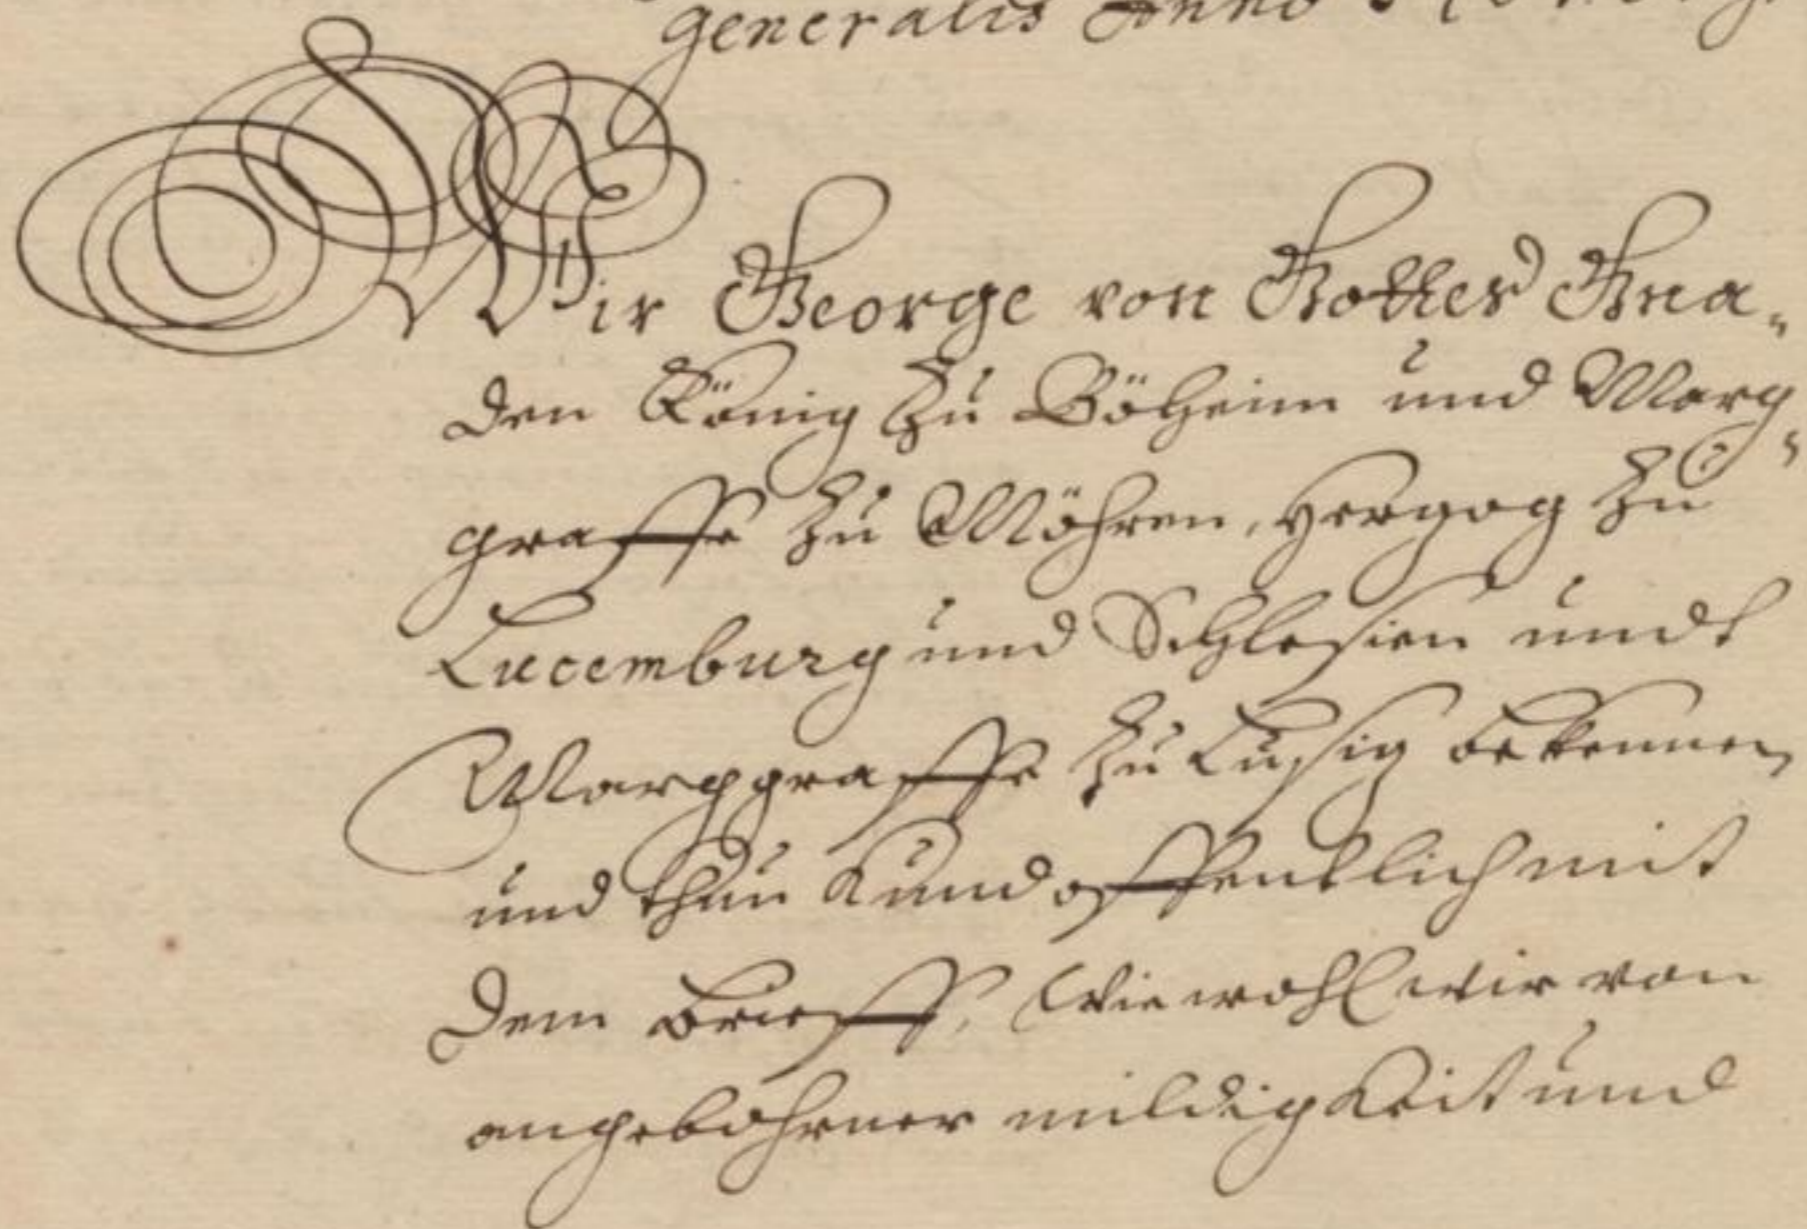 generalis Anno
Wir George von Gottes Gna„
den König zu Böheim und Marg„
graffe zu Möhren, Hertzog zu
Lucemburg und Schlesien undt
Marggraffe zu Lusig bekennen
und thun Kund offentlich mit
dem brieff, Wie wohl wir von
angebohrner mildigkeit und